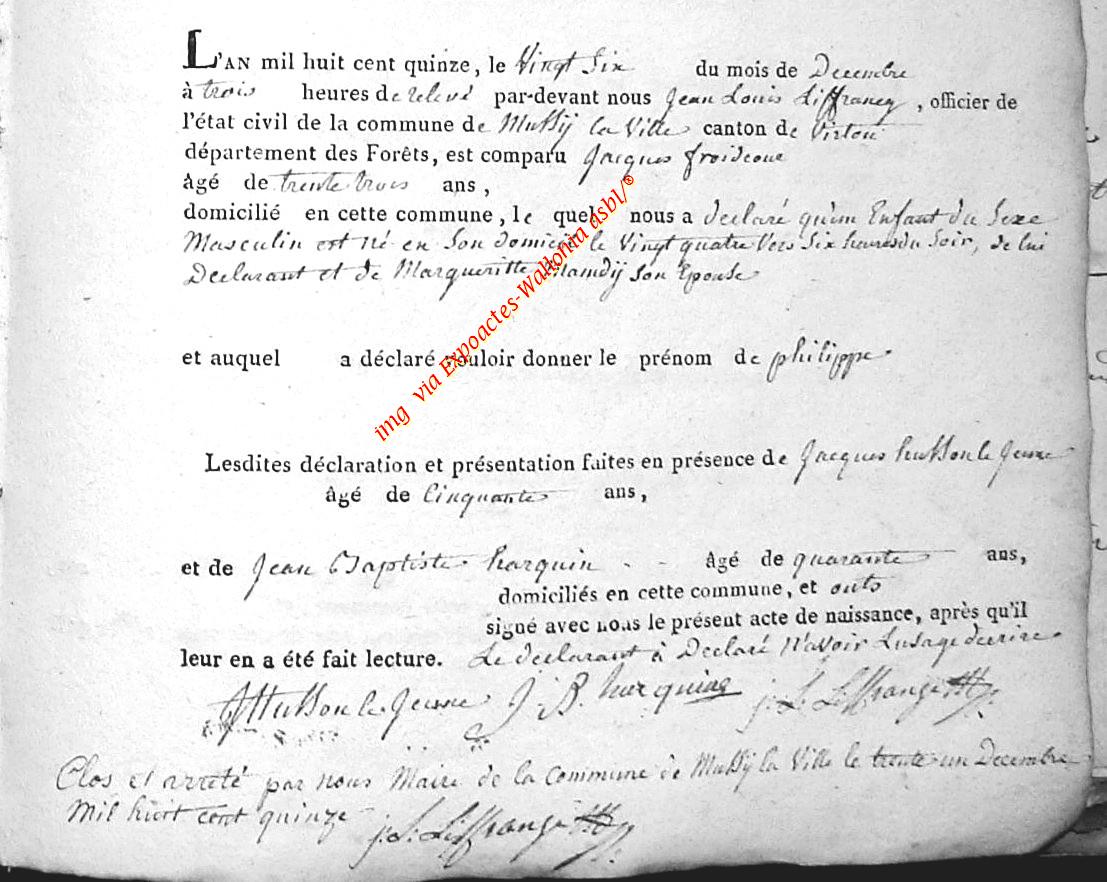 L'AN mil huit cent quinze, le Vingt Six du mois de Decembre
à trois heures de relevé par-devant nous Jean Louis Liffrancg, officier de
l'état civil de la commune de Mussÿ la Ville canton de Virton
département des Forêts, est comparu Jacques froidcour
âgé de trente trois ans,
domicilié en cette commune, le quel nous a déclaré qu'un Enfant du Sexe
Masculin est né en Son domicile le Vingt quatre Vers Six heures du Soir, de lui
Declarant et de Margueritte Mamdÿ Son Epouse
et auquel a déclaré vouloir donner le prénom de philippe
Lesdites déclaration et présentation faites en présence de Jacques husson le Jeune
âgé de Cinquante ans,
et de Jean Baptiste harquin - - âgé de quarante ans,
domiciliés en cette commune, et onts
signé avec nous le présent acte de naissance, après qu'il
leur en a été fait lecture. Le declarant à Declaré N'avoir Lusage decrire
Husson le Jeune J. B. hurquin j. L. Liffrange
Clos et arreté par nous Maire de la Commune de Mussÿ la Ville le trente un Decembre
Mil huit cent quinze j. L. Liffrange
img via Expoactes-Wallonia asbl/®